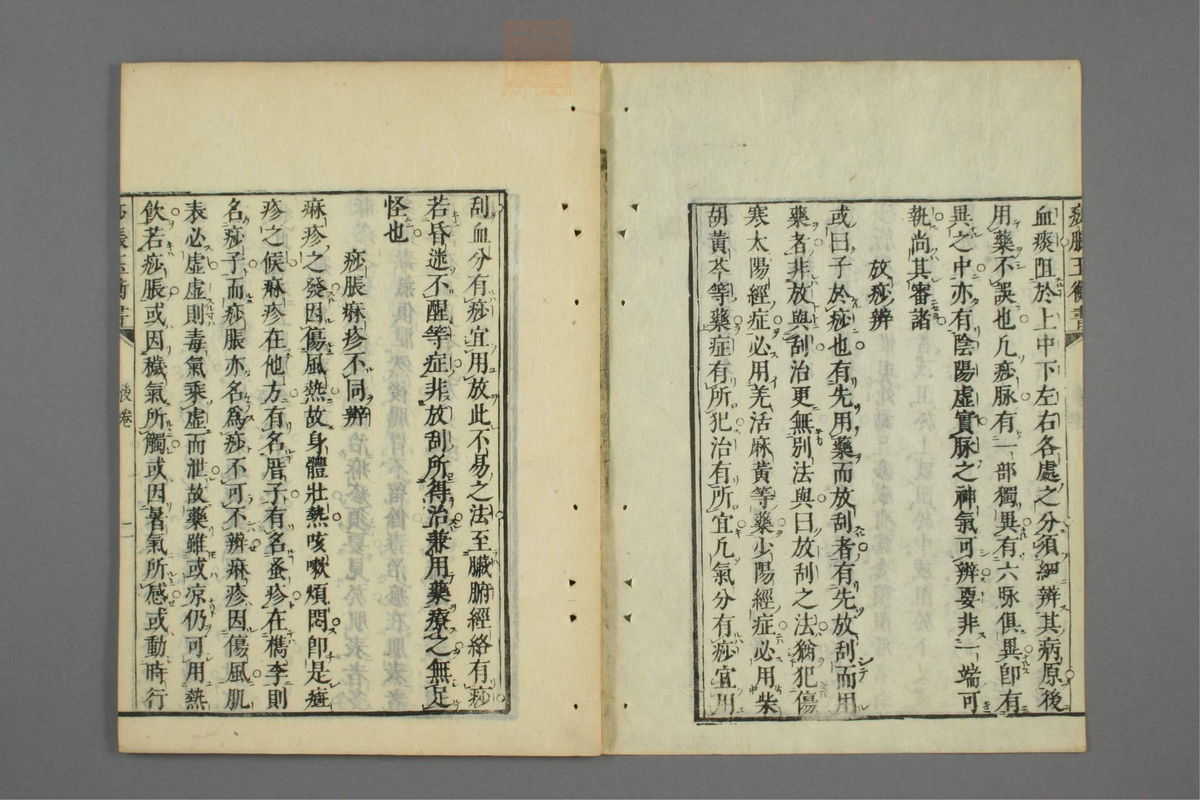 痧脹玉衡書
血瘀阻於上中下左右各處之分須細辨其病原後
用藥不誤也凢痧脉有一部獨異有六脉俱異卽有
異之中亦有陰陽虛實脉之神氣可辨要非一端可
執尚其審諸
放痧辨
或曰子於痧也有先用藥而放刮者有先放刮而用
藥者非放與刮治更無别法與曰放刮之法猶犯傷
寒太陽經症必用羌活麻黃等藥少陽經症必用柴
胡黃芩等藥症有所犯治有所宜凢氣分有痧宜用
刮血分有痧宜用放此不易之法至臟腑經絡有痧
若昏迷不醒等症非放刮所得治兼用藥療之無足
怪也
痧脹麻疹不同辨
麻疹之發因傷風熱故身體壯熱咳嗽煩悶卽是痲
疹之候痲疹在他方有名厝子有名蚤疹在檇李則
名痧子而痧脹亦名爲痧不可不辨痲疹因傷風肌
表必虛虛則毒氣乘虛而泄故藥雖或凉仍可用熱
飲若痧脹或因穢氣所觸或因暑氣所感或動時行
痧脹玉衡書
後卷
二
zyzj.com.cn